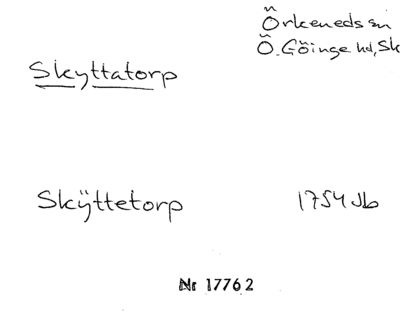 Örkeneds sn
Ö. Göinge hd, Sk
Skyttatorp
Skÿttetorp 1754 Jb
Nr 17762